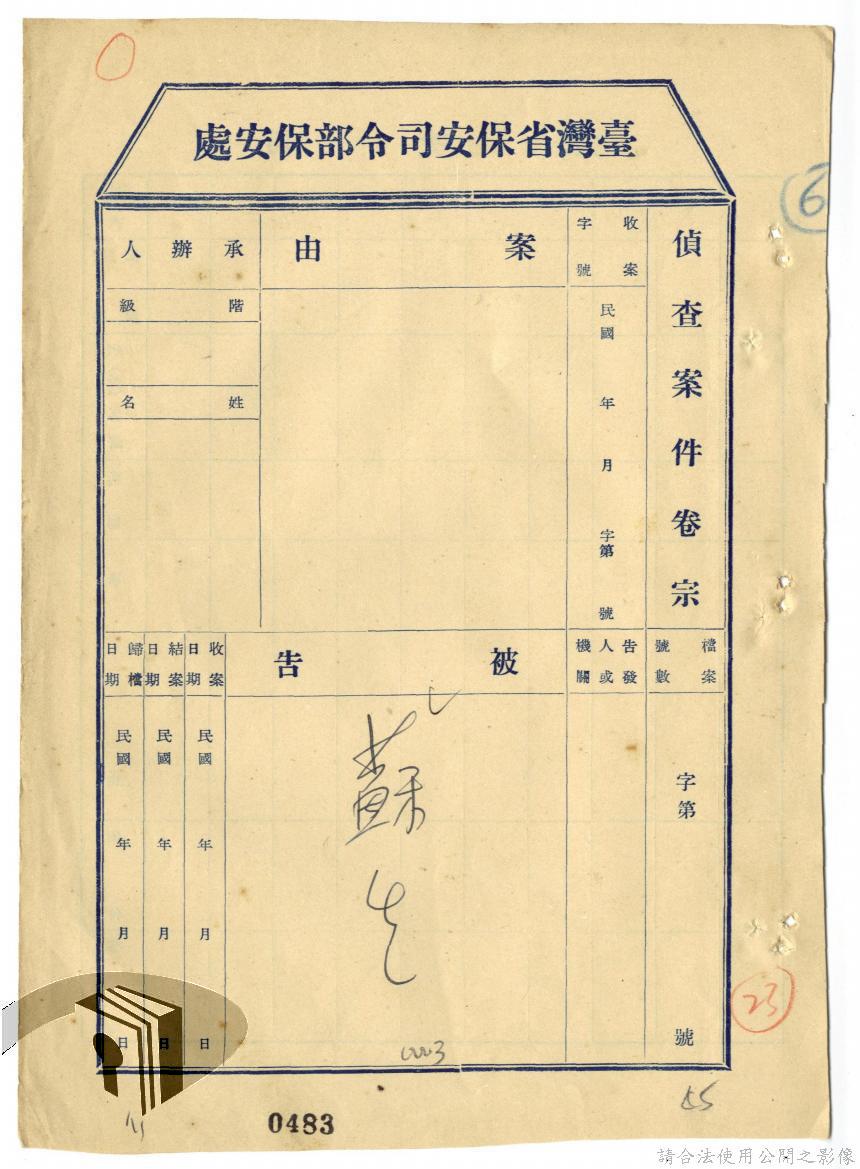 臺灣省保安司令部保安處
6
偵查案件卷宗
收案字號
民國 年 月 字第 號
案由
承辦人
階級
姓名
檔案號數
字第 號
告發人或機關
被告
蘇先
收案日期
民國 年 月 日
結案日期
民國 年 月 日
歸檔日期
民國 年 月 日
23
0003
0483
請合法使用公開之影像